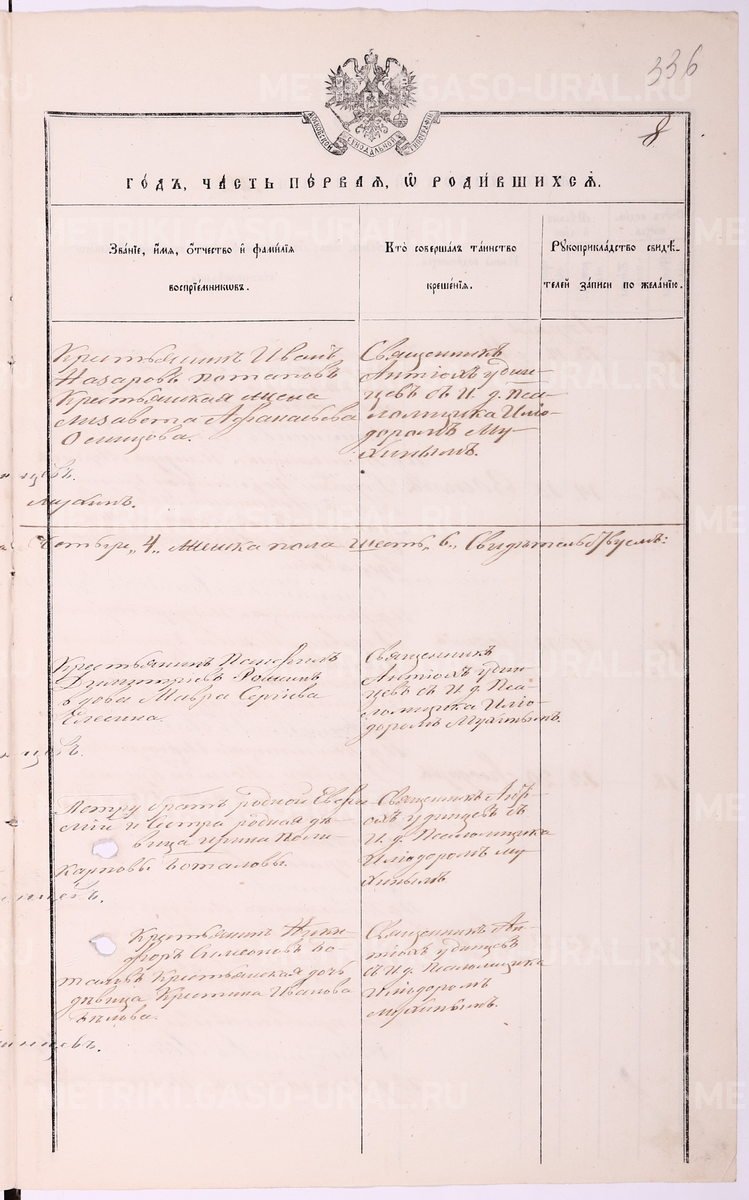 336
8
МОСКОВСКОЙ СѴНОДАЛЬНОЙ ТИПОГРАФІИ
ГО́ДЪ, ЧА́СТЬ ПЕ́РВАЯ, Ѡ҆ РОДИ́ВШИХСЯ.
Зва́нїе, и҆́мя, ѻ҆́тчество и҆ фами́лїя
воспрїе́мниковъ.
Кто̀ соверша́лъ та́инство
креще́нїя.
Рꙋкоприкла́дство свидѣ́-
телей за́писи по жела́нїю.
Крестьянинъ Иванъ
Назаровъ Потаповъ
Крестьянская жена
Лизавета Афанасьева
Священникъ
Антіохъ Удин-
цевъ съ И. д. Пса-
ломщика Иліо-
доромъ Му-
хинымъ.
цевъ.
Мухинъ.
Четыре „4„ Женска пола шесть „6„ Свидѣтельствуемъ:
Крестьянинъ
Димитріевъ
вдова Мавра Сергіева
Священникъ
Антіохъ Удин-
цевъ съ И. д. Пса-
ломщика Иліо-
доромъ Мухинымъ.
цевъ.
Петру братъ родной
и сестра родная дѣ-
вица Ирина Поли-
карповы Боталовы.
Священникъ Антi-
охъ Удинцевъ съ
И. д. Псаломщика
Иліодоромъ Му-
хинымъ
Крестьянинъ Ники-
форъ Симеоновъ Бо-
таловъ Крестьянская дочь
дѣвица Кристина Иванова
Бѣлова.
Священникъ Ан-
тіохъ Удинцевъ
съ И. д. Псаломщика
Иліодоромъ
Мухинымъ.
инцевъ.
METRIKI.GASO-URAL.RU